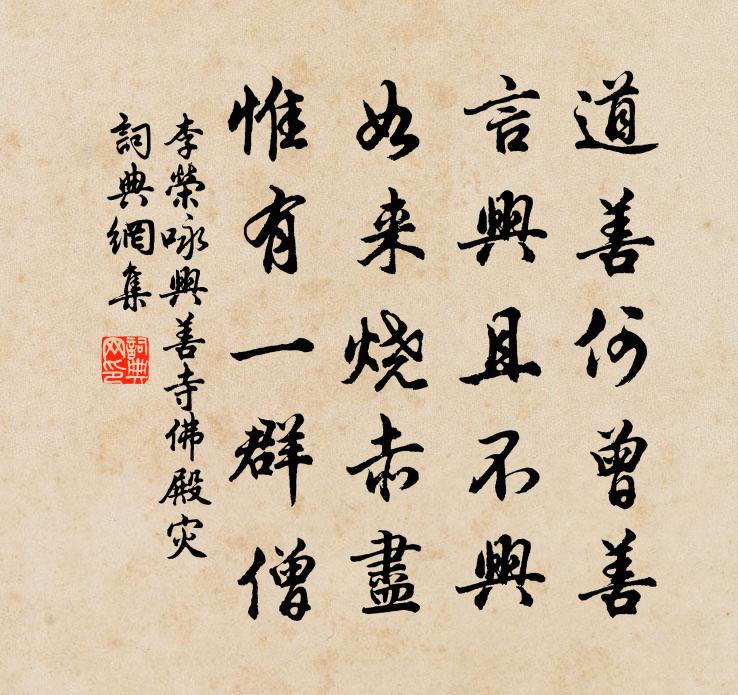 道善何曾善
言興且不興
如来烧赤盡
惟有一群僧
李榮咏興善寺佛殿灾
詞典網集
詞典网印